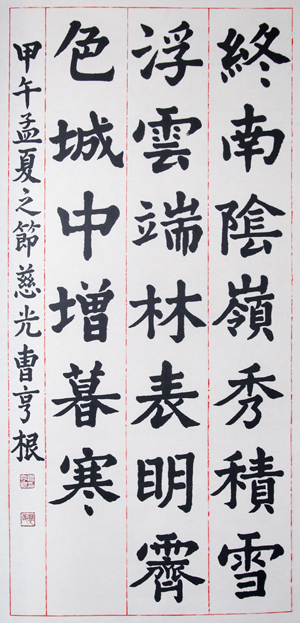 終南陰嶺秀積雪
浮雲端林表明霽
色城中增暮寒
甲午孟夏之節慈光曹亨根